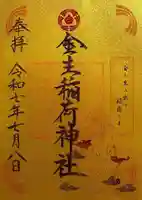 奉拝
金主稲荷神社
令和七年七月八日